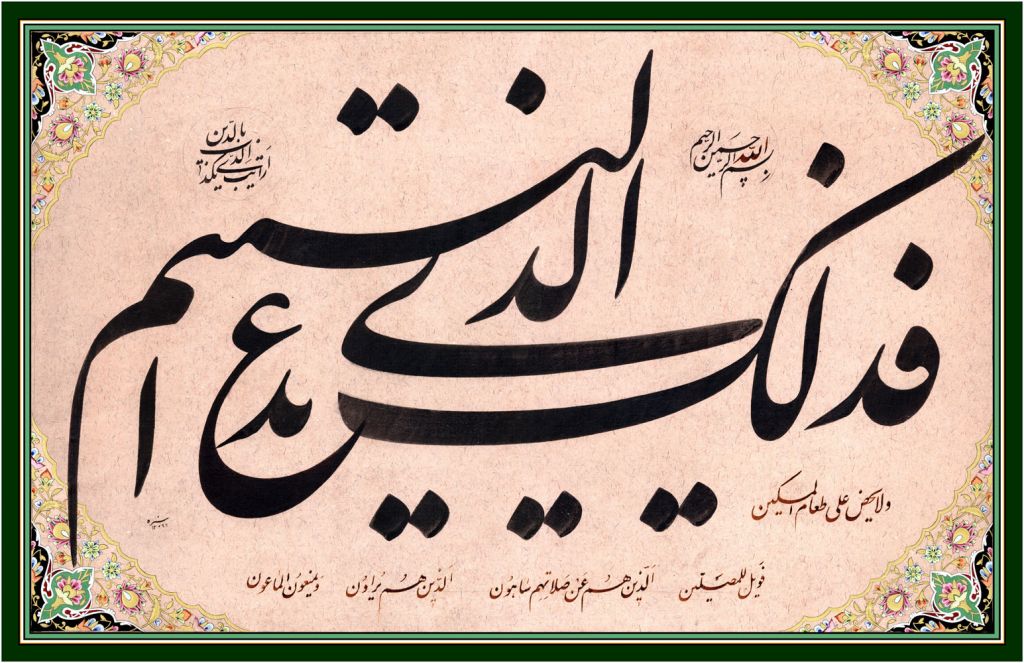 بسم الله الرحمن الرحيم
ارأيت الذي يكذب بالدين
فذلك الذي يدع اليتيم
ولا يحض على طعام المسكين
فويل للمصلين الذين هم عن صلاتهم ساهون الذين هم يراؤن ويمنعون الماعون